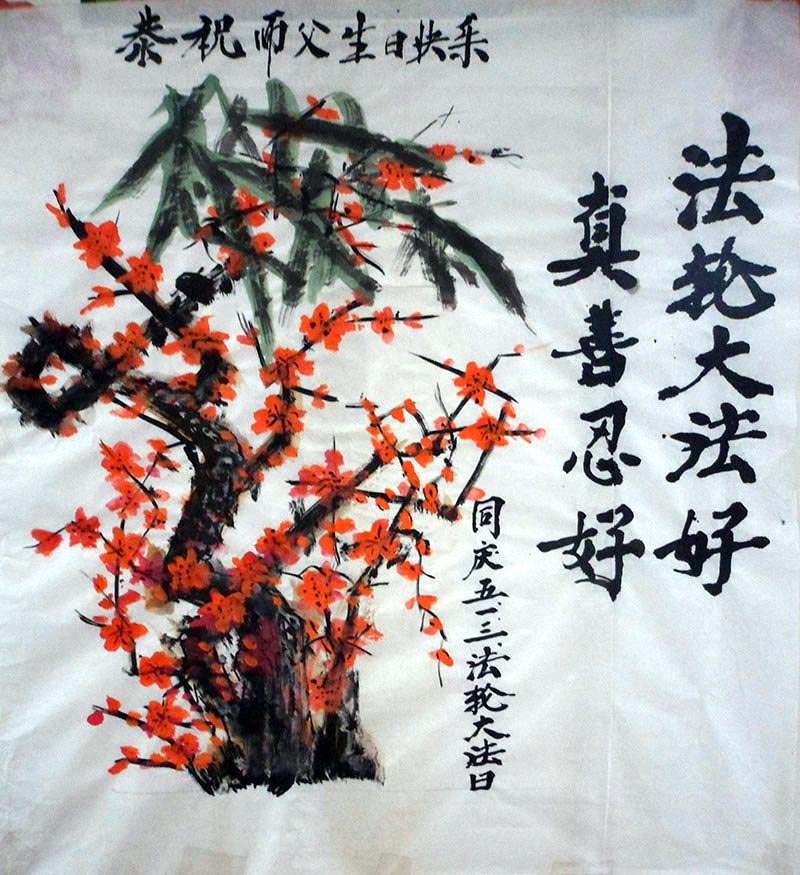 恭祝师父生日快乐
法轮大法好
真善忍好
同庆五一三法轮大法日